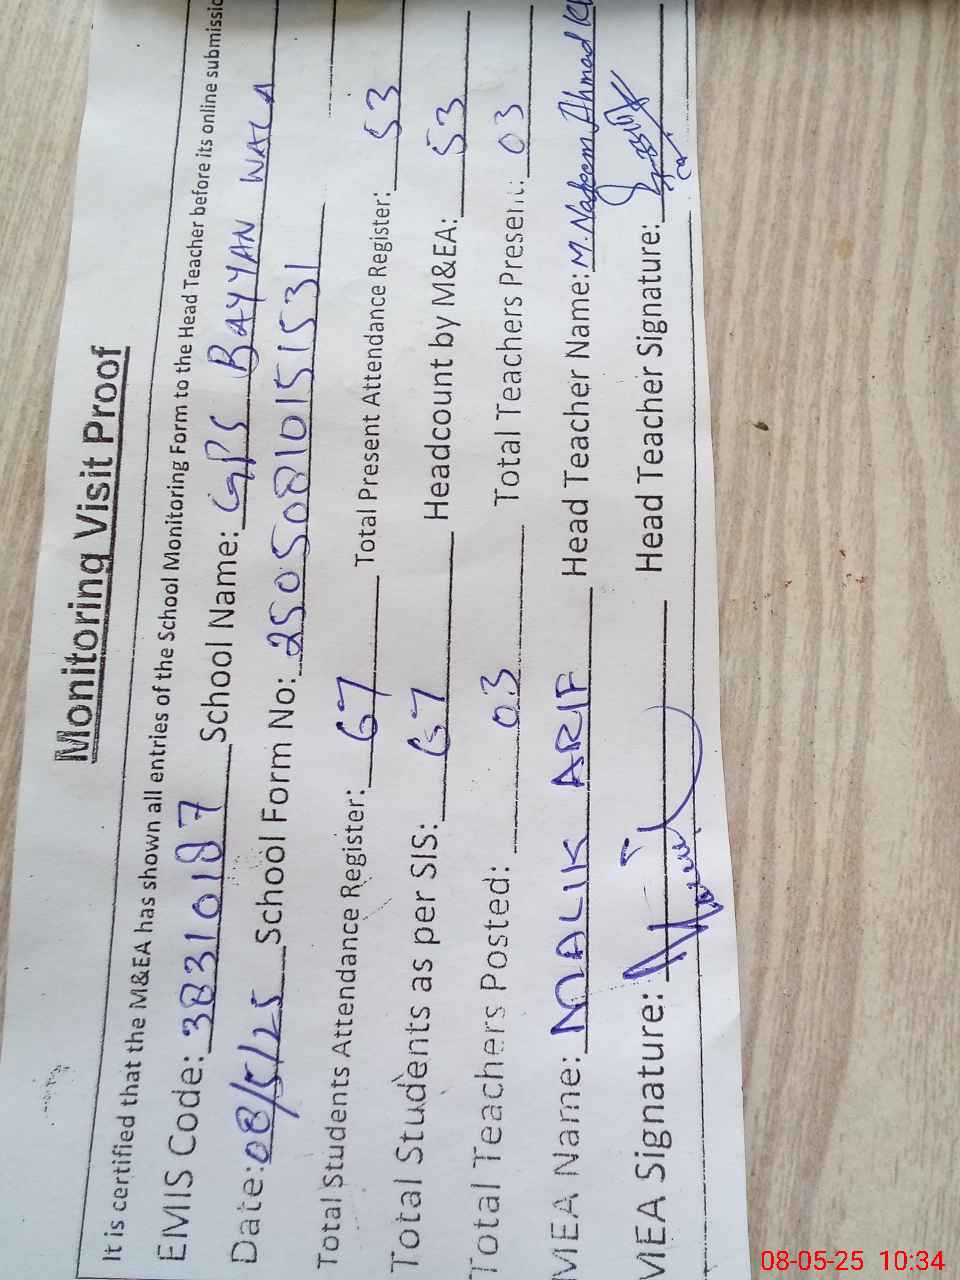 Monitoring Visit Proof
It is certified that the M&EA has shown all entries of the School Monitoring Form to the Head Teacher before its online
EMIS Code: 38310187 School Name: GPS BAYYAN WALA
Date: 08/5/25 School Form No: 25050810151531
Total Students Attendance Register: 67 Total Present Attendance Register: 53
Total Students as per SIS: 67 Headcount by M&EA: 53
Total Teachers Posted: 03 Total Teachers Present: 03
MEA Name: MALIK ARIF Head Teacher Name: M. Nadeem Ahmad
MEA Signature: Head Teacher Signature:
08-05-25 10:34